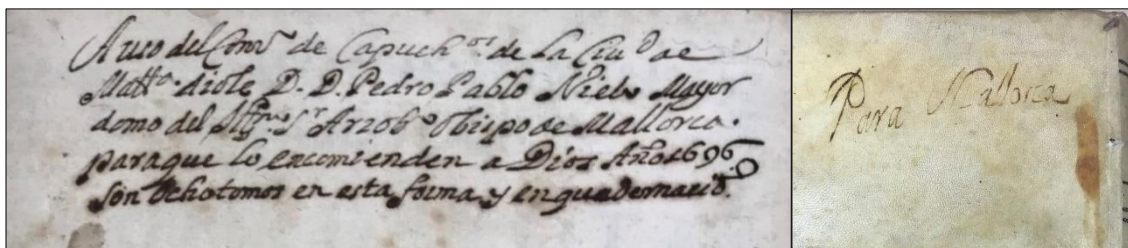 A uso del Conv.to de Capuch.os de La Ciu.d de
Mall.ca diole D. D. Pedro Pablo Nieto Mayor
domo del Ill.mo S.r Arzob.o Obispo de Mallorca.
paraque lo encomienden a Dios Año 1696
son ocho tomos en esta forma, y enquadernació.
Para Mallorca